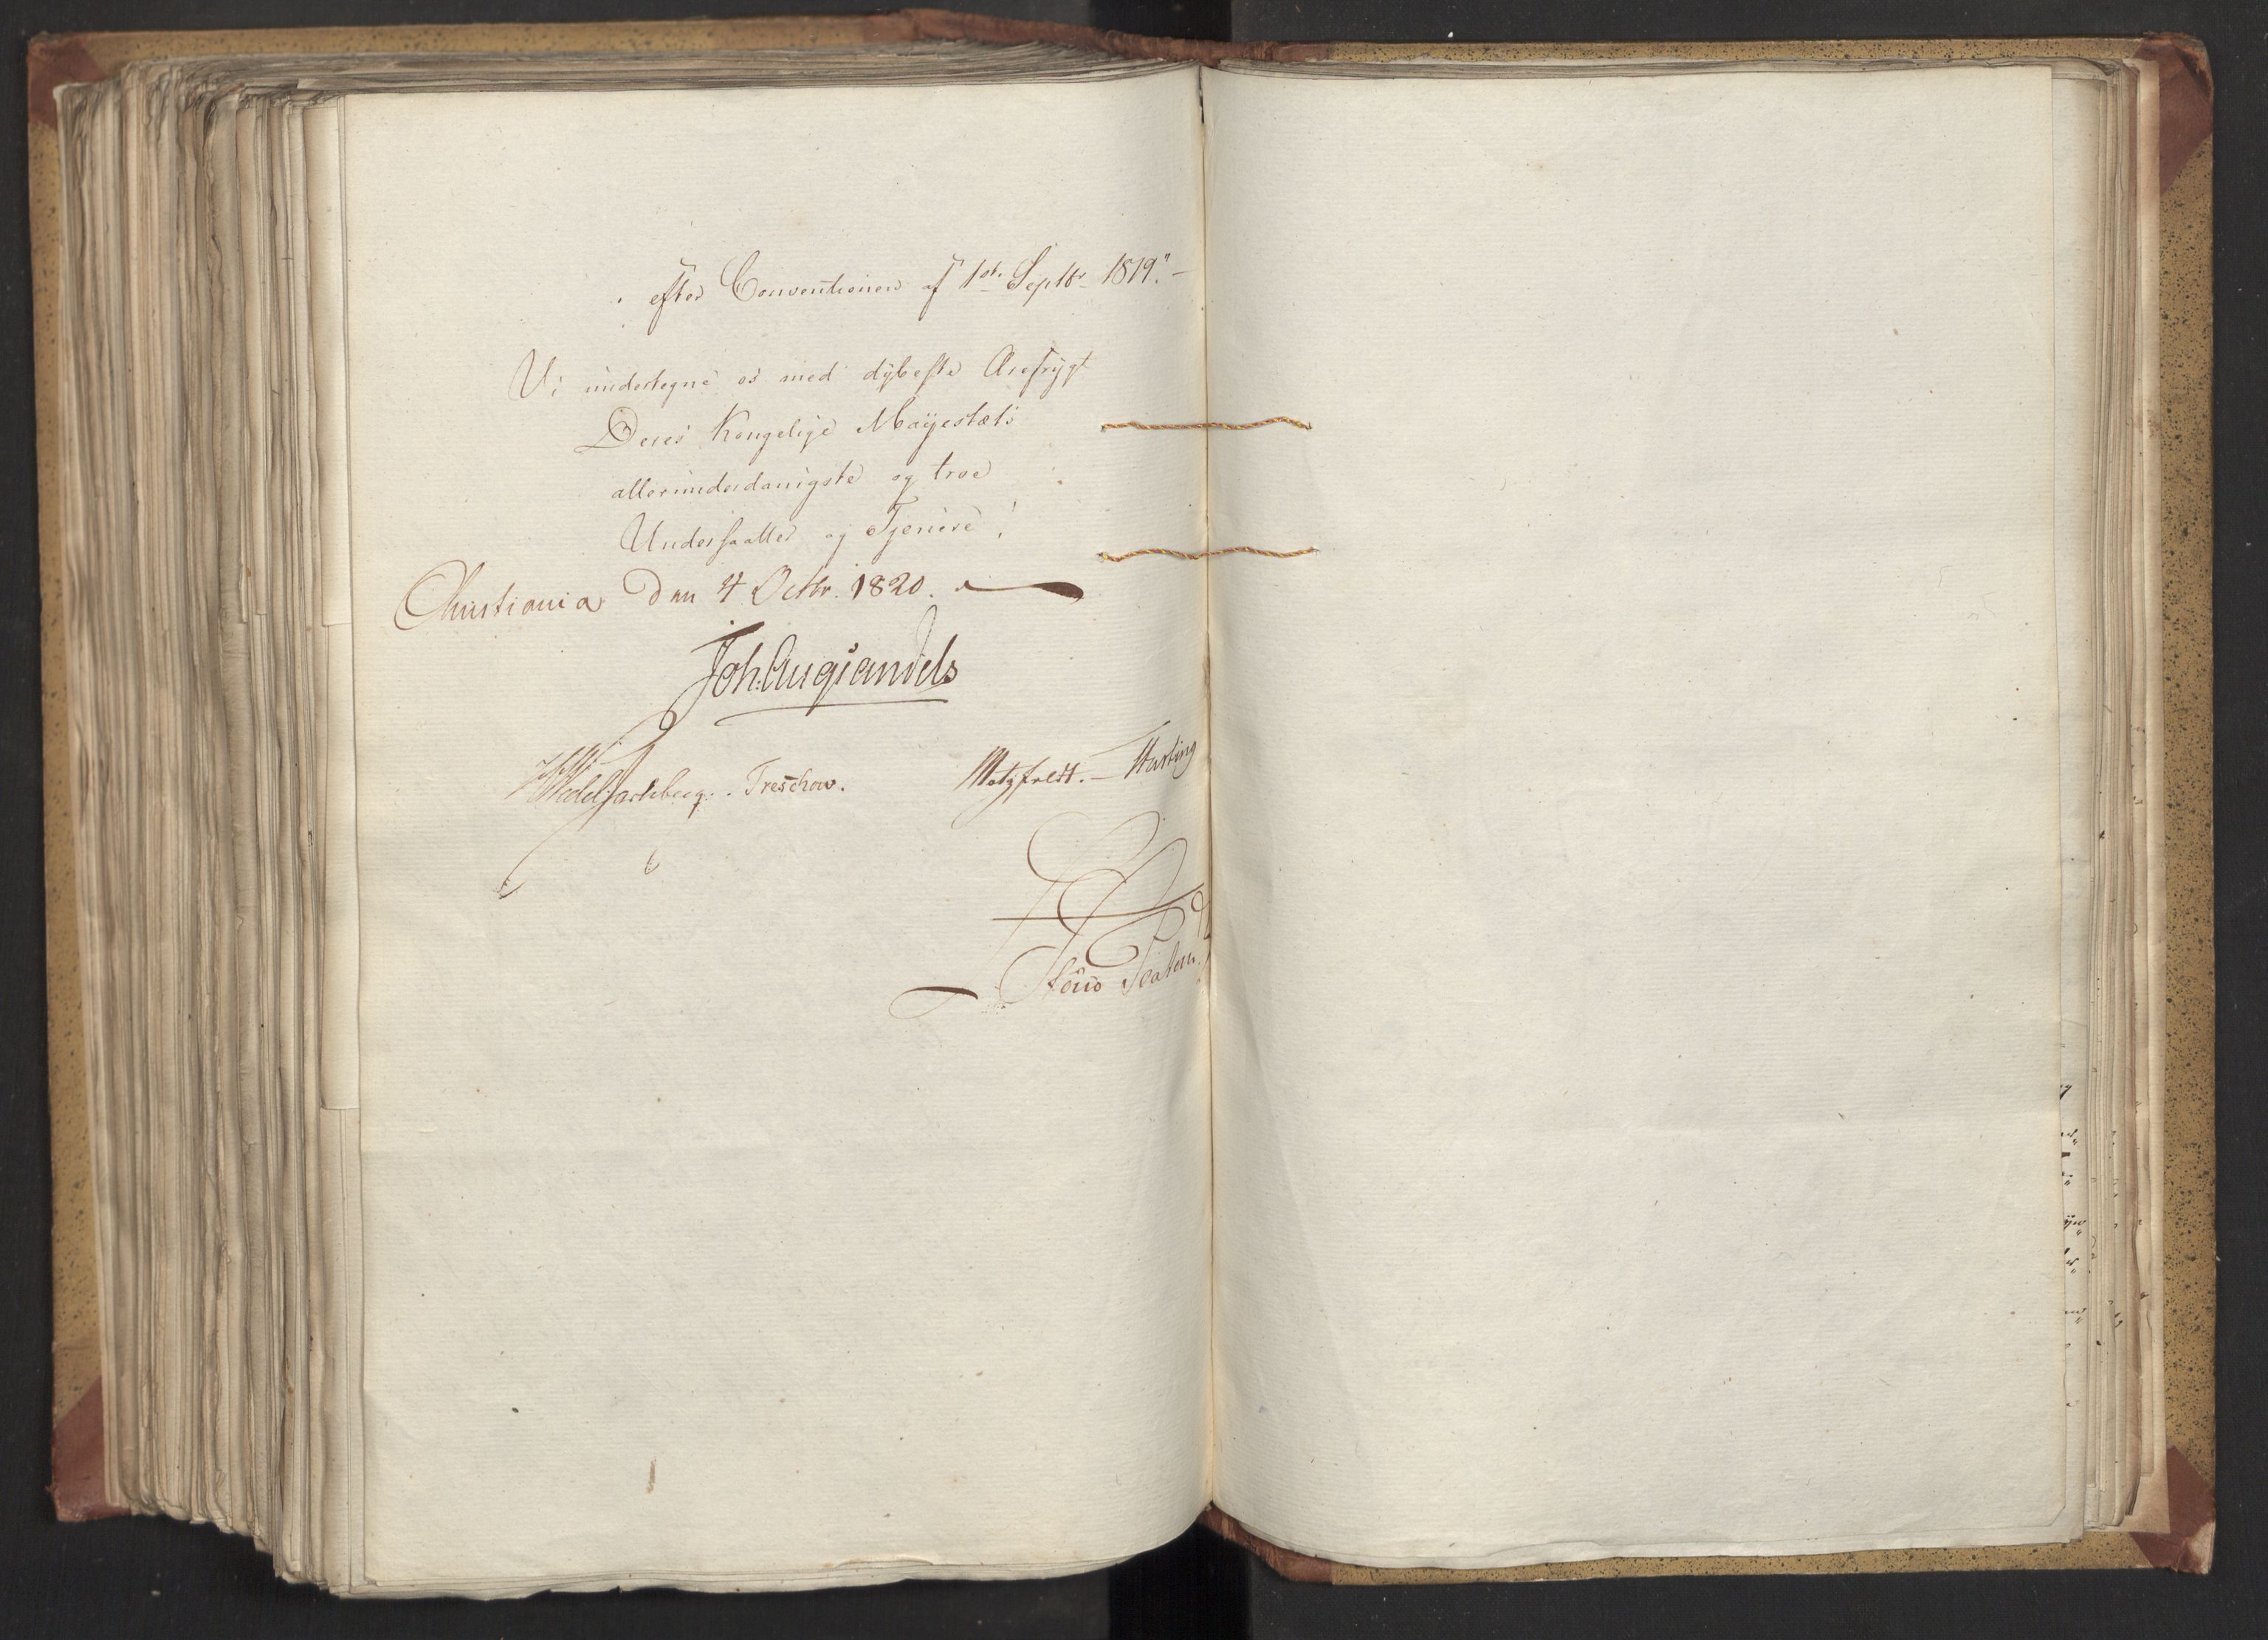 efter Conventionen af 1ste Septbr 1819."-
Vi undertegne os med dybeste Ærefrygt
Deres Kongelige Mayestæts
allerunderdanigste og troe
Undersaatter og Tjenere!
Christiania den 4 Octbr. 1820.
Joh: Aug: Sandels
HWedel Jarlsberg. Treschow. Motzfeldt. - Hasting